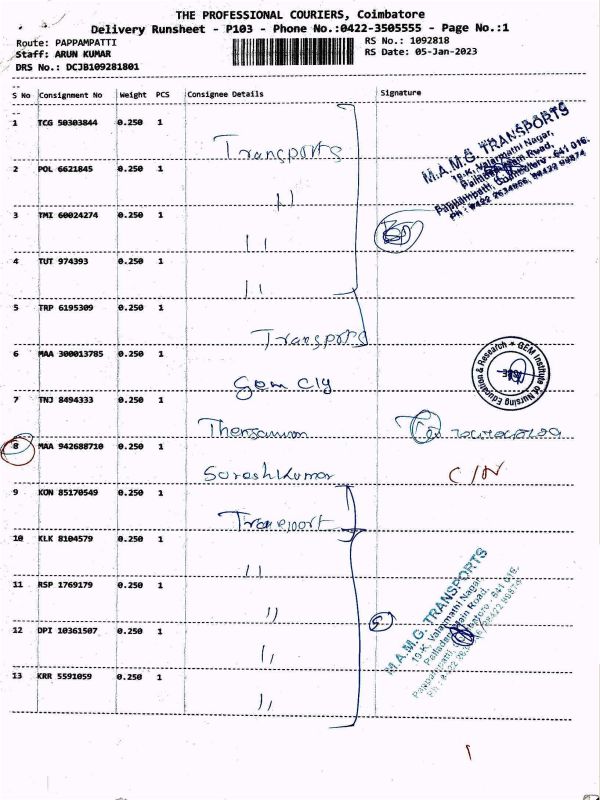 THE PROFESSIONAL COURIERS, Coimbatore
Delivery Runsheet - P103 - Phone No.:0422-3505555 - Page No.:1
Route: PAPPAMPATTI
Staff: ARUN KUMAR
DRS No.: DCJB109281801
RS No.: 1092818
RS Date: 05-Jan-2023
S No Consignment No Weight PCS Consignee Details Signature
1 TCG 50303844 0.250 1
Transports
2 POL 6621845 0.250 1
11
3 TMI 60024274 0.250 1
11
4 TUT 974393 0.250 1
11
5 TRP 6195309 0.250 1
Transports
6 MAA 300013785 0.250 1
Gem Clg
7 TNJ 8494333 0.250 1
8 MAA 942688710 0.250 1
Sureshkumar C/N
9 KON 85170549 0.250 1
Transport
10 KLK 8104579 0.250 1
11
11 RSP 1769179 0.250 1
11
12 DPI 10361507 0.250 1
11
13 KRR 5591059 0.250 1
11
M.A.M.G. TRANSPORTS
19-K, Valarmathi Nagar,
Palladam Main Road,
Pappampatti, Coimbatore - 641 016.
GEM Institute of Nursing Education & Research
M.A.M.G. TRANSPORTS
19-K, Valarmathi Nagar,
Palladam Main Road,
Pappampatti, Coimbatore - 641 016.